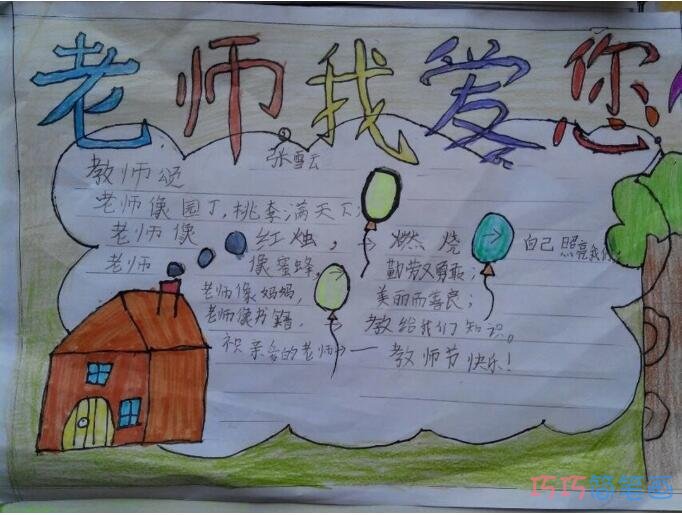 老师我爱您
教师颂 张雪云
老师像园丁,桃李满天下;
老师像红烛,→燃烧→自己照亮我们;
老师像蜜蜂,→勤劳又勇敢;
老师像妈妈,美丽而善良;
老师像书籍,教给我们知识。
祝亲爱的老师们——教师节快乐!
巧巧简笔画